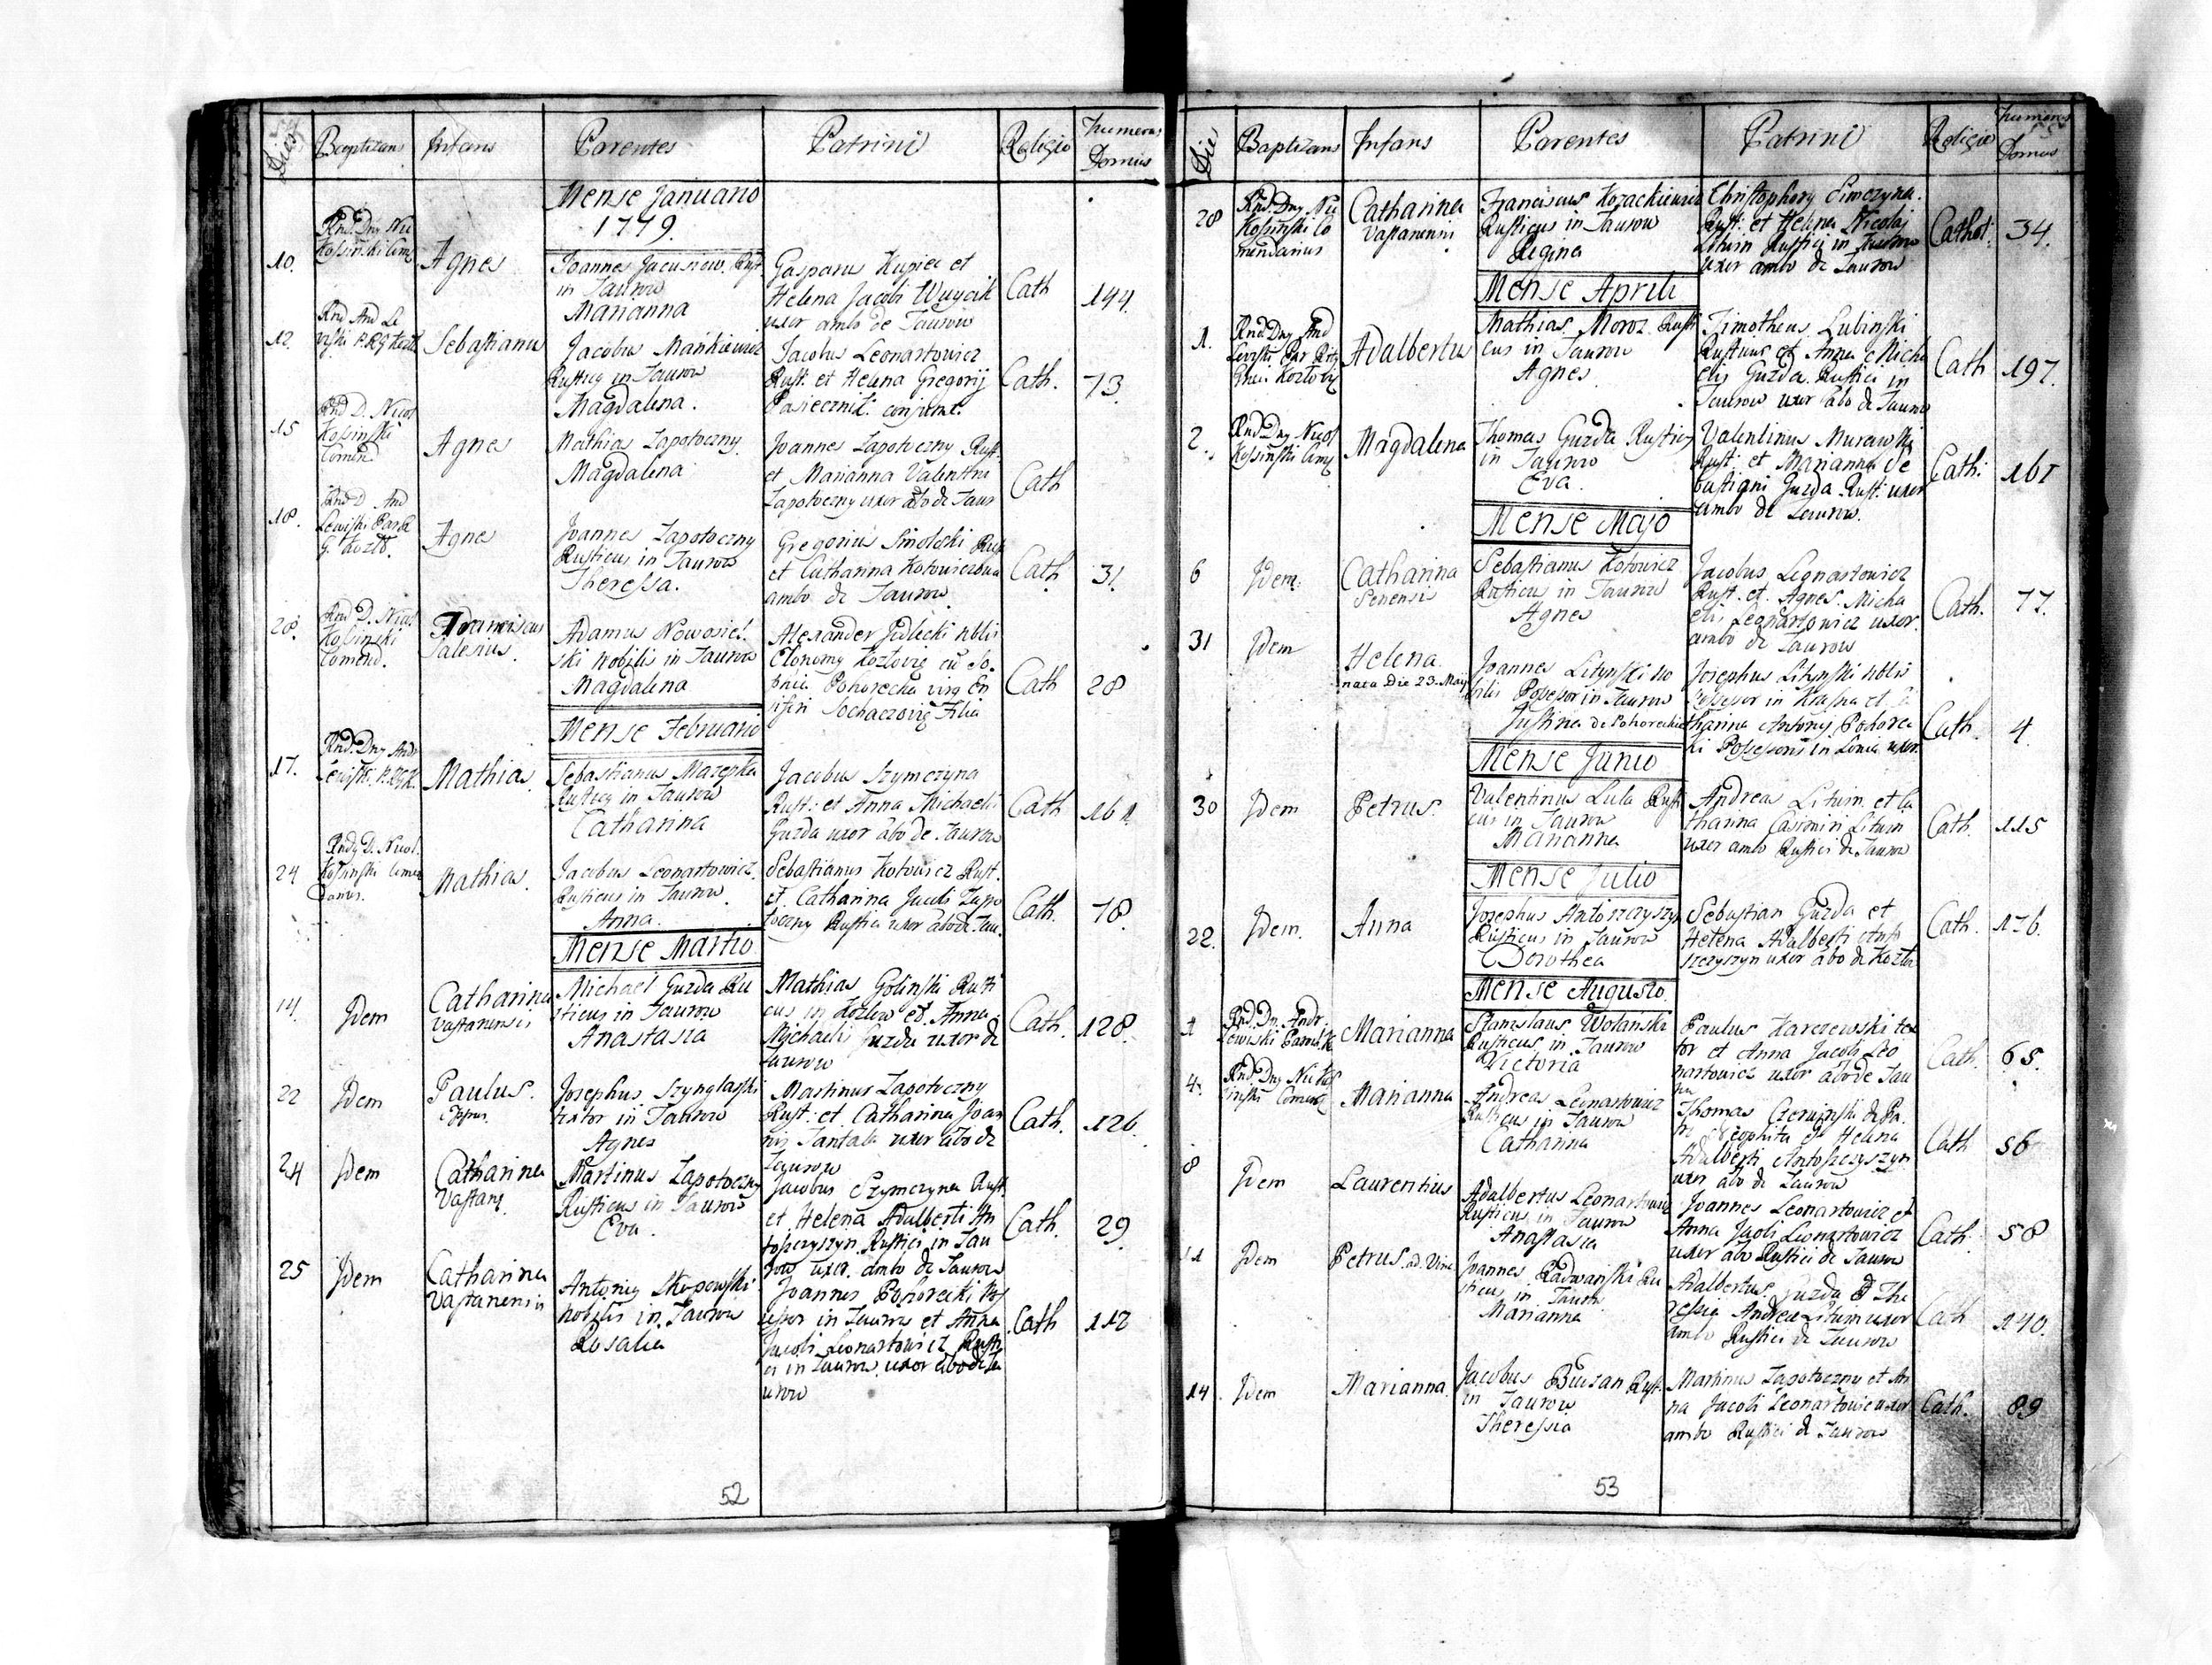 Dies Baptizans Infans Parentes Patrini Religio Numerus Domus
Mense Januario
1779.
10. Rnd. Dny Nic
Kossinski Com
Agnes
Joannes Jacusiow. Rust
in Taurow
Marianna
Gasparus Kupiec et
Helena Jacobi Wuycik
uxor ambo de Taurow
Cath 144.
12. Rnd And Le
Sebastianus
Jacobus Mańkiewicz
Rusticg in Taurow
Magdalena.
Jacobus Leonartowicz
Rust. et Helena Gregorij
Pasiecznik. conjunx.
Cath. 73.
15 Rnd D. Nicol
Kossinski
Comend
Agnes
Mathias Zapotoczny.
Magdalena
Joannes Zapotoczny Rust.
et Marianna Valentini
Zapotoczny uxor abo de Taur
Cath
18. Rnd D. And
Lewiski Par R
G. Kozło.
Agnes
Joannes Zapotoczny
Rusticus in Taurow
Theressa.
Gregorius Smolski Rust
et Catharina Kotowiczowna
ambo de Taurow.
Cath. 31.
28. Rnd D. Nicol
Kossinski
Comend.
Franciscus
Salesius.
Adamus Nowosiel.
ski Nobilis in Taurow
Magdalena
Alexander Jedlecki Nblis
Cath 28
Mense Februario
17. Rnd. Dny Andr
Mathias.
Sebastianus Mazepka
Rusticg in Taurow
Catharina
Jacobus Szymczyna
Rust. et Anna Michaelis
Guzda uxor abo de Taurow
Cath 161.
24 Rndg D. Nicol.
Kossinski Comen
darius.
Mathias.
Jacobus Leonartowicz.
Rusticus in Taurow.
Anna.
Sebastianus Kotowicz Rust.
et Catharina Jacobi Zapo
toczny Rustici uxor abo de Tau.
Cath. 78.
Mense Martio
14. Idem
Catharina
Vastanensis
Michael Guzda Ru
sticus in Taurow
Anastasia
Mathias Golinski Rusti
cus in Kozlow et Anna
Michaelis Guzda uxor de
Taurow
Cath. 128.
22 Idem
Paulus.
Josephus Szynglarski
in Taurow
Agnes
Martinus Zapotoczny
Rust. et Catharina Joan
nis Tantala uxor abo de
Taurow
Cath. 126.
24 Idem
Catharina
Vastang
Martinus Zapotoczny
Rusticus in Taurow
Eva.
Jacobus Szymczyna Rust.
et Helena Adalberti An
toszczyszyn Rustici in Tau
row uxor. ambo de Taurow
Cath. 29.
25 Idem
Catharina
Vastanensis
Antonig Skopowski
Nobilis in Taurow
Rosalia
Joannes Pohorecki Pos
sessor in Taurow et Anna
Jacobi Leonartowicz Rusti
ci in Taurow uxor abo de Ta
urow
Cath 112
52
Die Baptizans Infans Parentes Patrini Religio Numerus Domus
28 Rnd. Dny Nic
Kossinski Co
mendarius
Catharina
Vastanensis
Franciscus Kozackiewicz
Rusticus in Taurow
Regina
Christophorg Simczyna.
Rust. et Helena Nicolai
Liturn Rustici in Taurow
uxor ambo de Taurow
Cathol. 34.
Mense Aprili
1. Rnd. Dny And
Adalbertus
Mathias Moroz Rusti
cus in Taurow
Agnes.
Timotheus Lubinski
Rusticus et Anna Micha
elis Guzda Rustici in
Taurow uxor abo de Taurow
Cath 197.
2. Rnd Dny Nicol
Kossinski Com
Magdalena
Thomas Guzda Rusticg
in Taurow
Eva.
Valentinus Murawski
Rust. et Marianna Se
bastiani Guzda Rust. uxor
ambo de Taurow.
Cath. 161
Mense Majo
6 Idem
Catharina
Senensis
Sebastianus Kotowicz
Rusticus in Taurow
Agnes
Jacobus Leonartowicz
Rust. et Agnes Micha
elis Leonartowicz uxor.
ambo de Taurow
Cath. 77.
31 Idem
Helena.
nata Die 23. May
Joannes Litynski no
bilis Possesor in Taurow
Justina de Pohoreckie
Josephus Litynski Nblis
Possesor in Krasna et Ca
tharina Antony Pohorec
ki Possesoris in uxor
Cath. 4.
Mense Junio
30 Idem
Petrus.
Valentinus Lula Rusti
cus in Taurow
Marianna
Andreas Liturn. et Ca
tharina Casimiri Liturn
uxor ambo Rustici de Taurow
Cath. 115
Mense Julio
22. Idem.
Anna
Josephus Antoszczyszyn
Rusticus in Taurow
Dorothea
Sebastian Guzda et
Helena Adalberti Anto
szczyszyn uxor abo de Kozlo
Cath. 176.
Mense Augusto.
1 Rnd. Dn. Andr.
Marianna
Stanislaus Wolanski
Rusticus in Taurow
Victoria
Paulus Karczewski tex
tor et Anna Jacobi Leo
nartowicz uxor abo de Tau
Cath. 65.
4. Marianna
Andreas Leonartowicz
Rusticus in Taurow
Catharina
Thomas Czerwinski de Pa.
Neophita et Helena
Adalberti Antoszczyszyn
uxor abo de Taurow
Cath 56
8 Idem
Laurentius
Adalbertus Leonartowicz
Rusticus in Taurow
Anastasia
Joannes Leonartowicz et
Anna Jacobi Leonartowicz
uxor abo Rustici de Taurow
Cath. 58
11 Idem
Petrus. ad. Vinc
Joannes Radwanski Ru
sticus in Taurow
Marianna
Adalbertus Guzda et The
ressia Andrea Liturn uxor
ambo Rustici de Taurow
Cath 140.
14 Idem
Marianna.
Jacobus Bursan Rust.
in Taurow
Theressia
Martinus Zapotoczny et An
na Jacobi Leonartowicz uxor
ambo Rustici de Taurow
Cath. 89
53